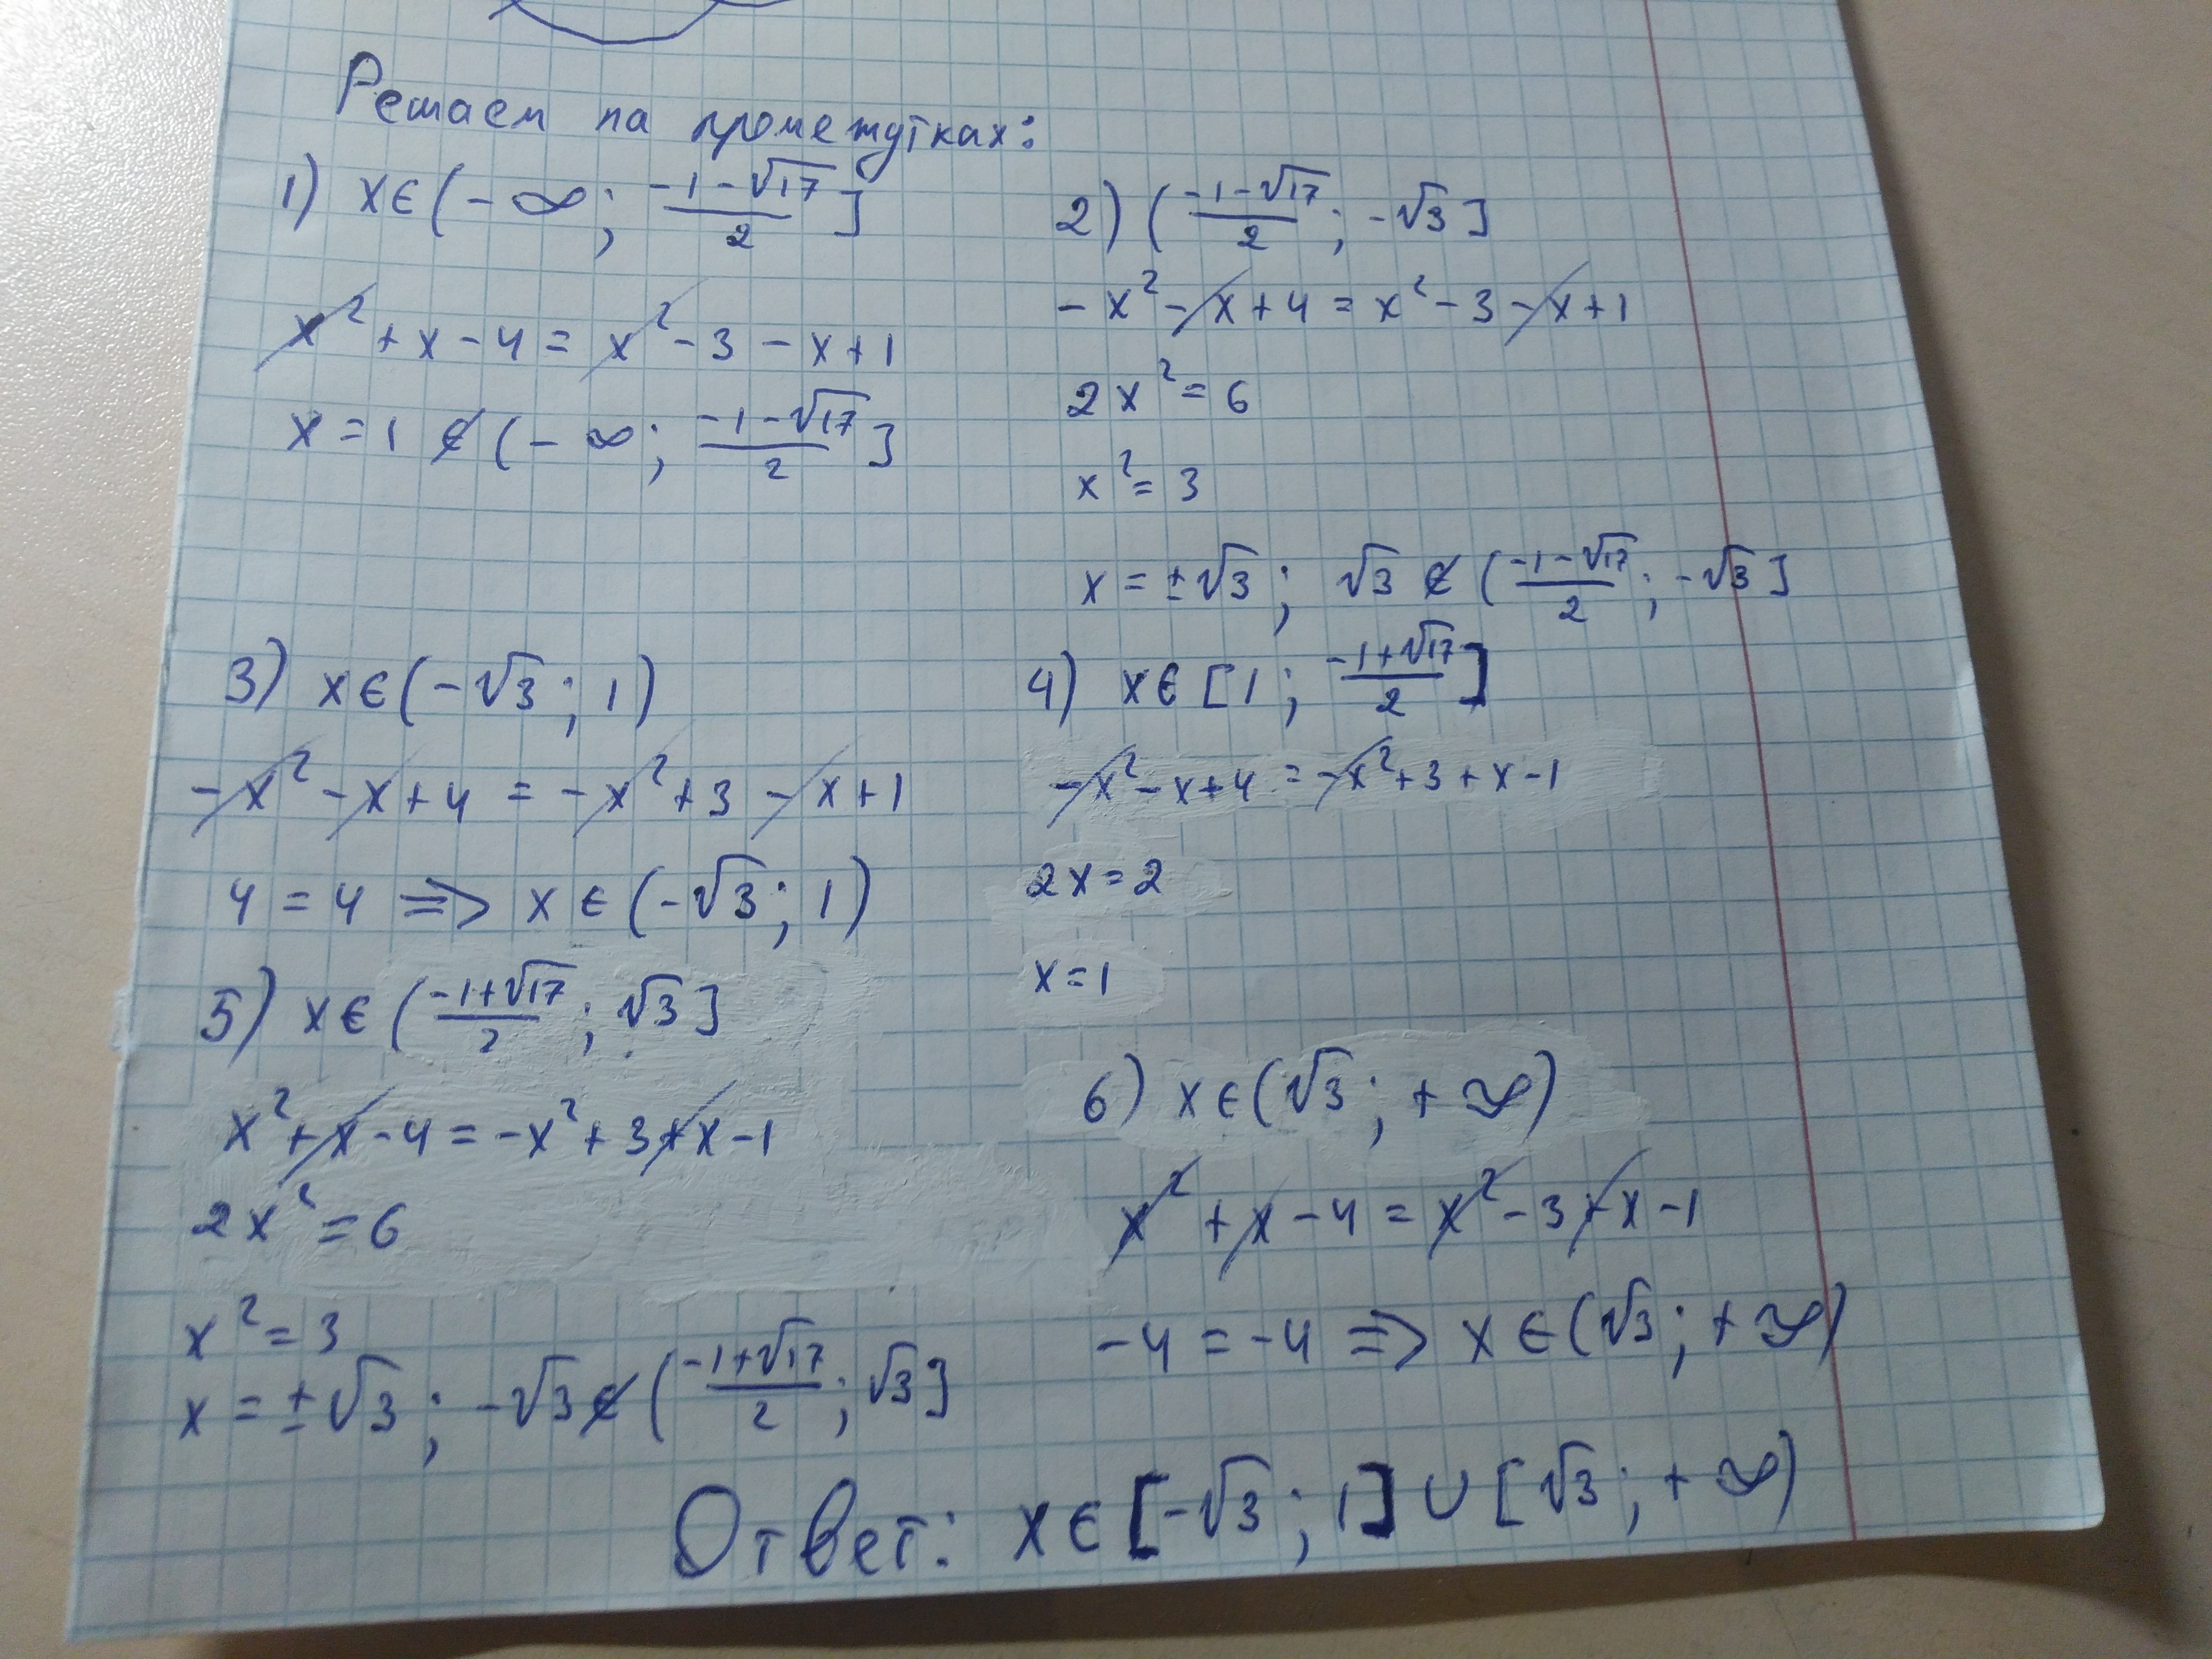 Решаем на промежутках:
1) x∈(-∞; (-1-√17)/2]
x²+x-4=x²-3-x+1
x=1∉(-∞; (-1-√17)/2]
2) ((-1-√17)/2; -√3]
-x²-x+4=x²-3-x+1
2x²=6
x²=3
x=±√3; √3∉((-1-√17)/2; -√3]
3) x∈(-√3; 1)
-x²-x+4=-x²+3-x+1
4=4 => x∈(-√3; 1)
4) x∈[1; (-1+√17)/2]
-x²-x+4=-x²+3+x-1
2x=2
x=1
5) x∈((-1+√17)/2; √3]
x²+x-4=-x²+3+x-1
2x²=6
x²=3
x=±√3; -√3∉((-1+√17)/2; √3]
6) x∈(√3; +∞)
x²+x-4=x²-3+x-1
-4=-4 => x∈(√3; +∞)
Ответ: x∈[-√3; 1]∪[√3; +∞)